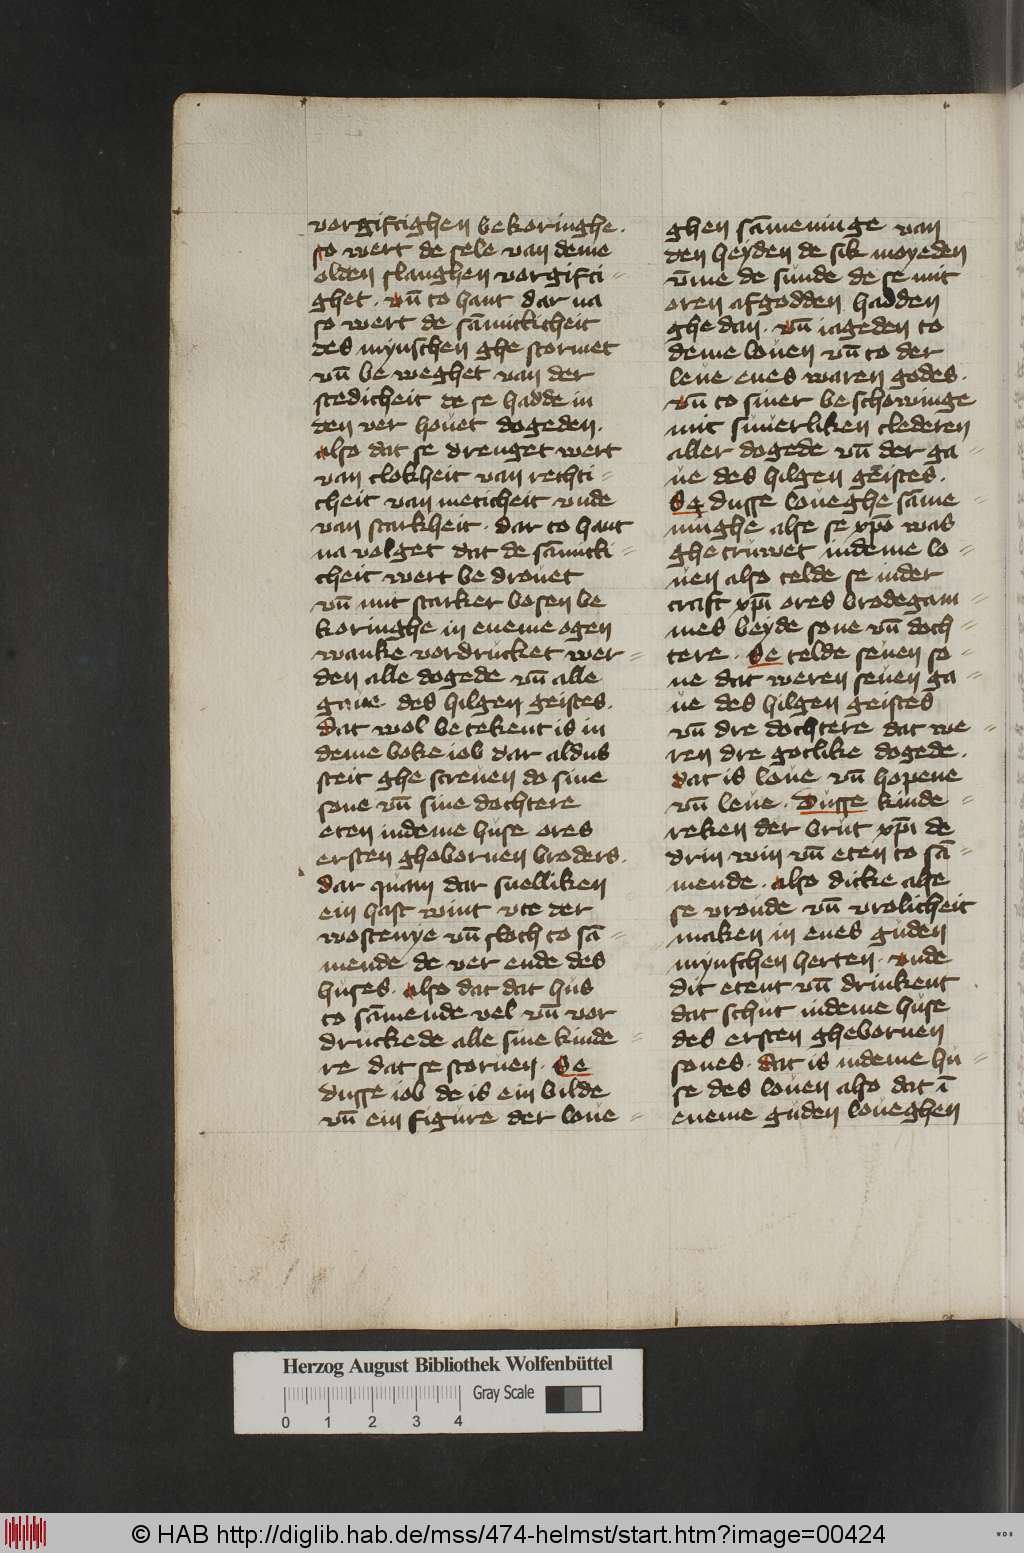 vorgiftighen bekoringhe.
so wert de sele van deme
olden slanghen vorgifti-
ghet. vn̄ to hant dar na
so wert de sām̄itlicheit
des mynschen ghe stormet
vn̄ be weghet van der
stedicheit de se hadde in
den ver houet dogeden.
also dat se drenget wert
van clokheit van rechti-
cheit van meticheit vnde
van starkheit. dar to hant
na volget dat de sām̄itli-
cheit wert be drouet
vn̄ mit starker bosen be
koringhe in eneme ogen
wanke vordrucket wer-
den alle dogede vn̄ alle
gaue des hilgen geistes.
dat wol be tekent is in
deme boke iob dar aldus
steit ghe screuen do sine
sone vn̄ sine dochtere
eten indeme huse ores
ersten ghebornen broders.
dar quam dar snelliken
ein hast wint vte der
wostenye vn̄ sloch to sā-
mende de ver ende des
huses. also dat dat hus
to sāmende vel vn̄ vor
druckede alle sine kinde-
re dat se storuen. Se
dusse iob de is ein bilde
vn̄ ein figure der loue-
ghen sāmeninge van
den heyden de sik moyeden
vm̄e de sunde de se mit
oren afgodden hadden
ghe dan. vn̄ iageden to
deme louen vn̄ to der
leue enes waren godes.
vn̄ to siner be schowinge
mit suuerliken clederen
aller dogede vn̄ der ga-
ue des hilgen geistes.
Se dusse loueghe sāme-
ninghe alse se xp̄o was
ghe truwet indeme lo-
uen also telde se inder
craft xp̄i ores brodegam-
mes beyde sone vn̄ doch-
tere. Se telde seuen so-
ne dat weren seuen ga-
ue des hilgen geistes
vn̄ dre dochtere dat we-
ren dre gotlike dogede.
dat is loue vn̄ hopene
vn̄ leue. Dusse kinde-
reken der brut xp̄i de
drin win vn̄ eten to sā-
mende. also dicke alse
se vroude vn̄ vrolicheit
maken in enes guden
mynschen herten. vnde
dit etent vn̄ drinkent
dat schut indeme huse
des ersten ghebornen
sones. dat is indeme hu-
se des louen also dat ī
eneme guden loueghen
Herzog August Bibliothek Wolfenbüttel
Gray Scale
0 1 2 3 4
© HAB http://diglib.hab.de/mss/474-helmst/start.htm?image=00424